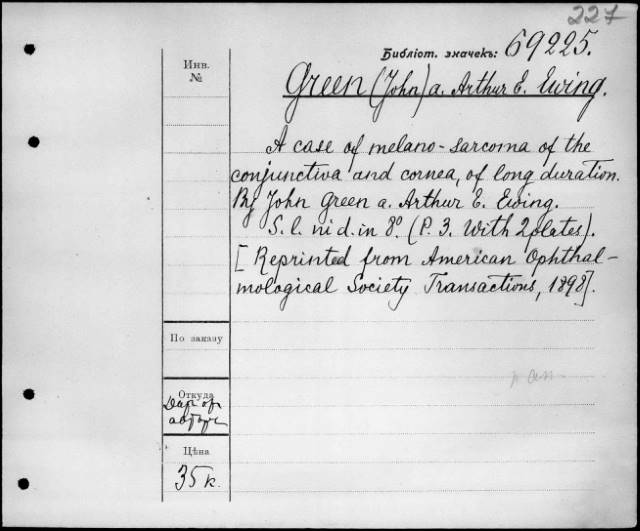 227
Библіот. значекъ: 69225.
Инв.
№
Green (John) a. Arthur E. Ewing.
A case of melano-sarcoma of the
conjunctiva and cornea, of long duration.
By John Green a. Arthur E. Ewing.
S. l. ni d. in 8º. (P. 3. With 2 plates).
[Reprinted from American Ophthal-
mological Society Transactions, 1898].
По заказу
Откуда
Даръ
Цѣна
35 к.